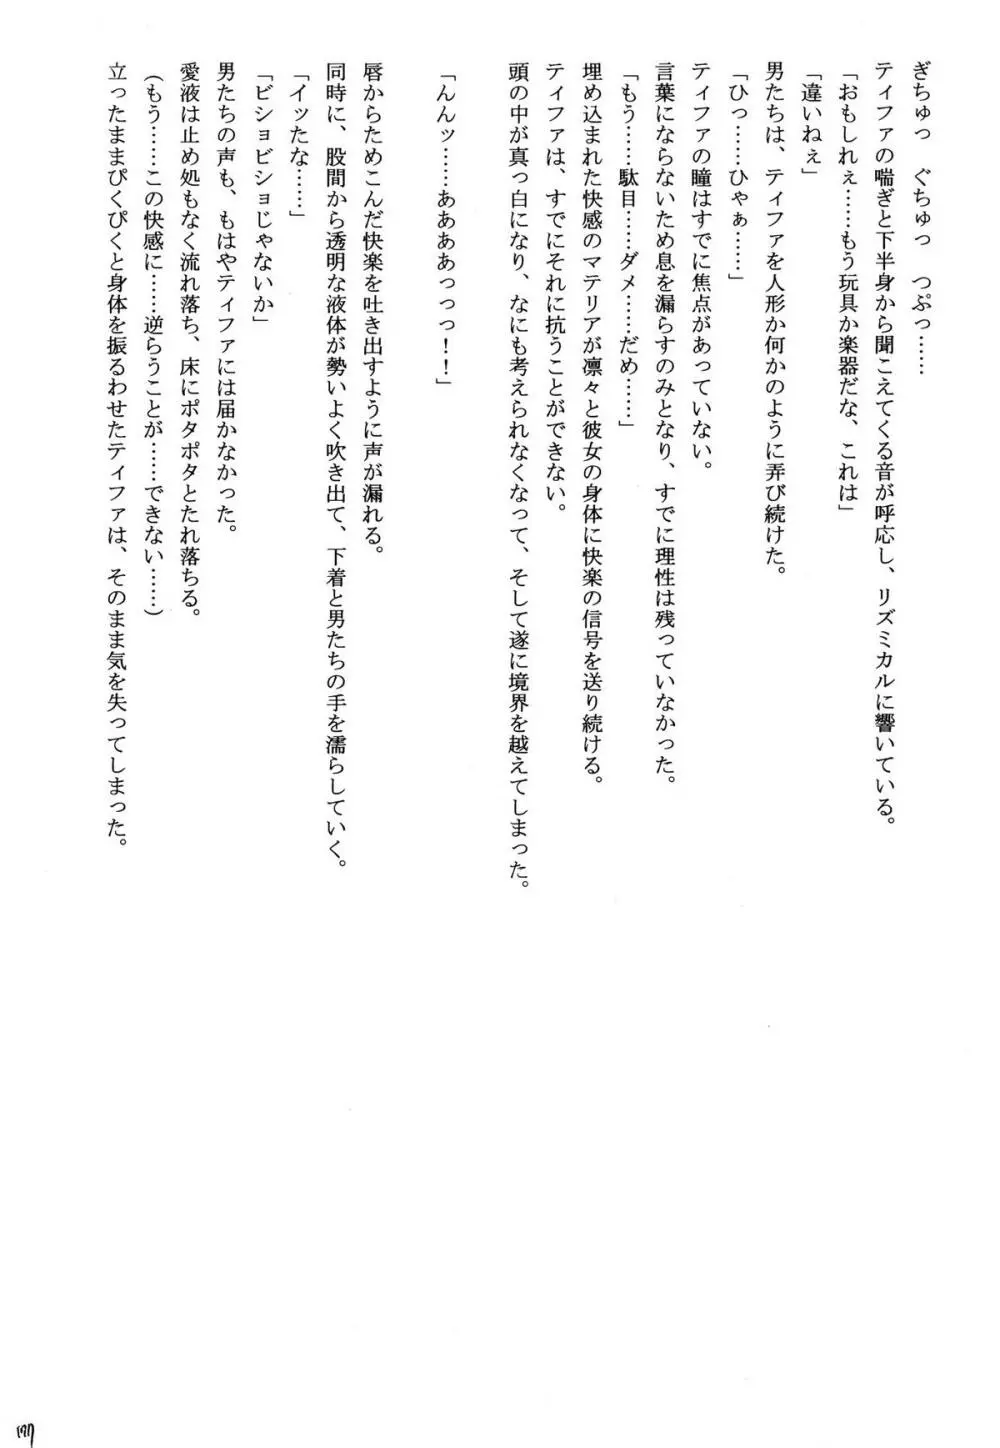 ぎちゅっ　ぐちゅっ　つぷっ……
ティファの喘ぎと下半身から聞こえてくる音が呼応し、リズミカルに響いている。
「おもしれぇ……もう玩具か楽器だな、これは」
「違いねぇ」
男たちは、ティファを人形か何かのように弄び続けた。
「ひっ……ひゃぁ……」
ティファの瞳はすでに焦点があっていない。
言葉にならないため息を漏らすのみとなり、すでに理性は残っていなかった。
「もう……駄目……ダメ……だめ……」
埋め込まれた快感のマテリアが凛々と彼女の身体に快楽の信号を送り続ける。
ティファは、すでにそれに抗うことができない。
頭の中が真っ白になり、なにも考えられなくなって、そして遂に境界を越えてしまった。
「んんッ……ああああっっっ！！」
唇からためこんだ快楽を吐き出すように声が漏れる。
同時に、股間から透明な液体が勢いよく吹き出て、下着と男たちの手を濡らしていく。
「イッたな……」
「ビショビショじゃないか」
男たちの声も、もはやティファには届かなかった。
愛液は止め処もなく流れ落ち、床にポタポタとたれ落ちる。
(もう……この快感に……逆らうことが……できない……)
立ったままぴくぴくと身体を振るわせたティファは、そのまま気を失ってしまった。